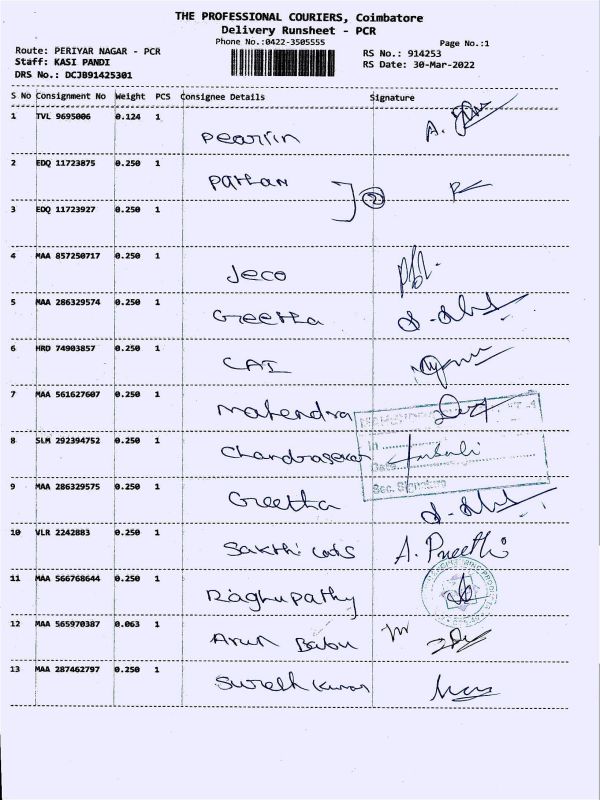 THE PROFESSIONAL COURIERS, Coimbatore
Delivery Runsheet - PCR
Phone No.:0422-3505555
Page No.:1
Route: PERIYAR NAGAR - PCR
RS No.: 914253
Staff: KASI PANDI
RS Date: 30-Mar-2022
DRS No.: DCJB91425301
S No Consignment No Weight PCS Consignee Details Signature
1 TVL 9695006 0.124 1
Pearlin A.
2 EDQ 11723875 0.250 1
Pathan 2
3 EDQ 11723927 0.250 1
4 MAA 857250717 0.250 1
Jeco
5 MAA 286329574 0.250 1
Greetha
6 HRD 74903857 0.250 1
CAI
7 MAA 561627607 0.250 1
Mahendra
8 SLM 292394752 0.250 1
Chandrasekar
In
Date
Sec. Signature
9 MAA 286329575 0.250 1
Greetha
10 VLR 2242883 0.250 1
Sakthi A. Preethi
11 MAA 566768644 0.250 1
Raghupathy
12 MAA 565970387 0.063 1
Arun Babu
13 MAA 287462797 0.250 1
Suresh Kumar